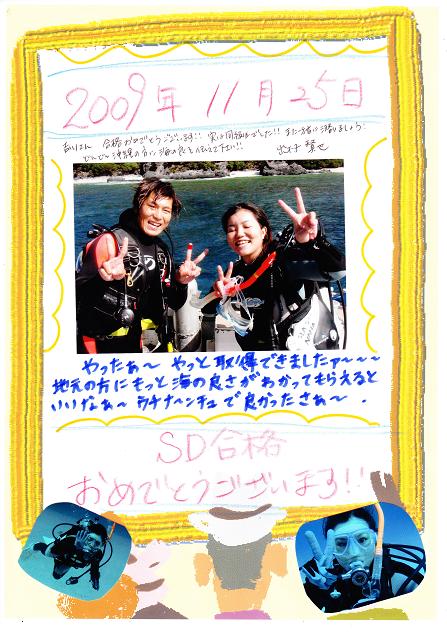 2009年 11月 25日
合格おめでとうございます!! 実は同級生でした!! また一緒に潜りましょう
どんどん沖縄の方に海の良さを伝えて下さい!!
やったぁ〜 やっと取得できましたァ〜〜〜
地元の方にもっと海の良さがわかってもらえると
いいなぁ〜 ウチナーンチュで良かったさぁ〜.
SD合格
おめでとうございます!!